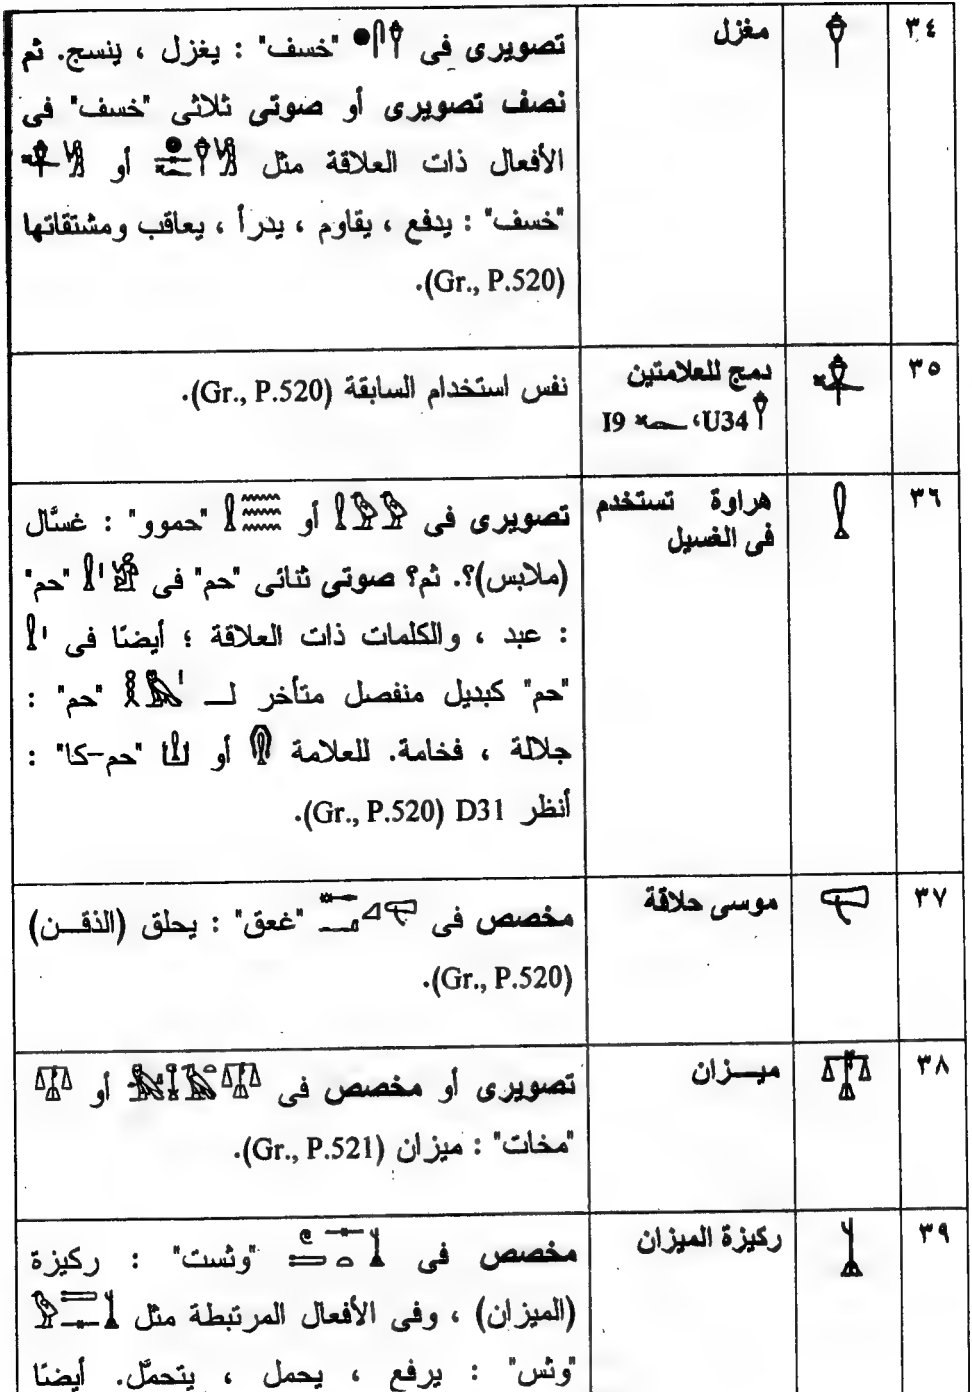 ٣٤ مغزل تصويرى فى "خسف" : يغزل ، ينسج. ثم
نصف تصويرى أو صوتى ثلاثى "خسف" فى
الأفعال ذات العلاقة مثل أو
"خسف" : يدفع ، يقاوم ، يدرأ ، يعاقب ومشتقاتها
(Gr., P.520).
٣٥ دمج للعلامتين نفس استخدام السابقة (Gr., P.520).
U34، I9
٣٦ هراوة تستخدم تصويرى فى أو "حموو" : غسَّال
فى الغسيل (ملابس)؟. ثم؟ صوتى ثنائى "حم" فى "حم"
: عبد ، والكلمات ذات العلاقة ؛ أيضنا فى
"حم" كبديل منفصل متأخر لــ "حم" :
جلالة ، فخامة. للعلامة أو "حم-كا" :
أنظر D31 (Gr., P.520).
٣٧ موسى حلاقة مخصص فى "غعق" : يحلق (الذقــن)
(Gr., P.520).
٣٨ ميــزان تصويرى أو مخصص فى أو
"مخات" : ميزان (Gr., P.521).
٣٩ ركيزة الميزان مخصص فى "وثست" : ركيزة
(الميزان) ، وفى الأفعال المرتبطة مثل
"وثس" : يرفع ، يحمل ، يتحمَّل. أيضنا